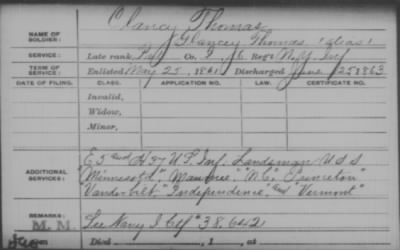 Clancy Thomas
NAME OF SOLDIER: Glancey Thomas "alias"
SERVICE: Late rank, Co. Reg't N.Y. Inf
TERM OF SERVICE: Enlisted May 25, 1861 Discharged June 25 1863
DATE OF FILING. CLASS. APPLICATION NO. LAW. CERTIFICATE NO.
Invalid,
Widow,
Minor,
ADDITIONAL SERVICES: E5 and H37 U.S. Inf. Landsman U S S
"Minnesota", "M.C." "Princeton"
Vanderbilt," "Independence" and "Vermont"
REMARKS: See Navy I Ctf "38,642
M. M.
Died , 1 , at